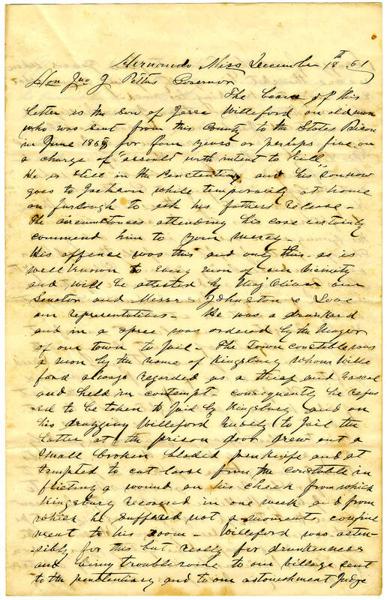 Hernando Miss December 18th 61
Hon Jno J Pettus Governor
The bearer of this
letter is the Son of Jesse Williford an old man
who was sent from this County to the States Prison
in June 1860 for four years or perhaps five on
a charge of "assault with intent to kill".
He is still in the Penitentiary and his son now
goes to Jackson while temporarily at home
on furlough to ask his fathers release.
The circumstances attending his case certainly
commend him to your mercy.
His offence was this and only this. as is
well known to every man of our vicinity
and will be attested by Maj Oliver our
Senator and Messrs Johnston & Love
our representatives. He was a drunkard
and in a spree was ordered by the Mayor
of our town to Jail. The Town constable was
a man by the name of Kingsbury whom Willi
ford always regarded as a thief and rascal
and held in contempt. consequently he refus
ed to be taken to Jail by Kingsbury and on
his dragging Williford rudely to Jail the
latter at the prison door drew out a
small broken bladed penknife and at
tempted to cut loose from the constable in
flicting a wound on his cheek from which
Kingsbury recovered in one week and from
which he suffered not a moments confine
ment to his room. Williford was osten
sibly for this but really for drunkenness
and being troublesome to our village sent
to the penitentiary and to our astonishment Judge